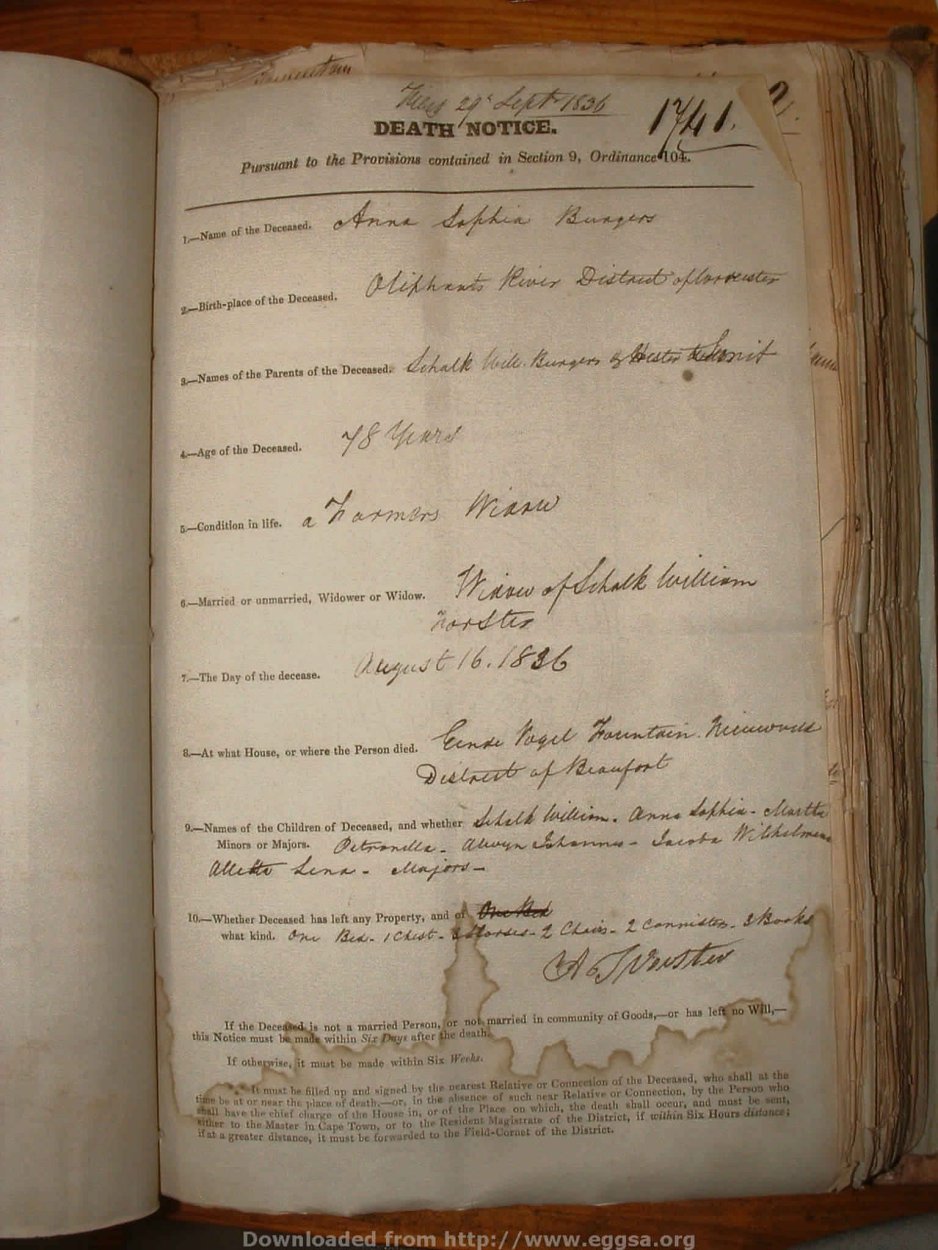 29th Sept 1836
1741.
2.
DEATH NOTICE.
Pursuant to the Provisions contained in Section 9, Ordinance 104.
1.—Name of the Deceased. Anna Sophia Burgers
2.—Birth-place of the Deceased. Oliphants River District of Worcester
3.—Names of the Parents of the Deceased. Schalk Will. Burgers & Hester
4.—Age of the Deceased. 78 Years
5.—Condition in life. a Farmers Widow
6.—Married or unmarried, Widower or Widow. Widow of Schalk William
Forster
7.—The Day of the decease. August 16. 1836
8.—At what House, or where the Person died. Eende Vogel Fountain. Nieuwveld
District of Beaufort
9.—Names of the Children of Deceased, and whether Schalk William. Anna Sophia - Martha
Minors or Majors. Petronella - Alewyn Johannes - Jacoba Wilhelmena
Aletta Lena - Majors -
10.—Whether Deceased has left any Property, and of One Bed
what kind. One Bed - 1 Chest - Horses - 2 Chairs - 2 Connisters - 3 Books
If the Deceased is not a married Person, or not married in community of Goods,—or has left no Will,—
this Notice must be made within Six Days after the death.
If otherwise, it must be made within Six Weeks.
*** It must be filled up and signed by the nearest Relative or Connection of the Deceased, who shall at the
time be at or near the place of death,—or, in the absence of such near Relative or Connection, by the Person who
shall have the chief charge of the House in, or of the Place on which, the death shall occur, and must be sent,
either to the Master in Cape Town, or to the Resident Magistrate of the District, if within Six Hours distance;
if at a greater distance, it must be forwarded to the Field-Cornet of the District.
Downloaded from http://www.eggsa.org